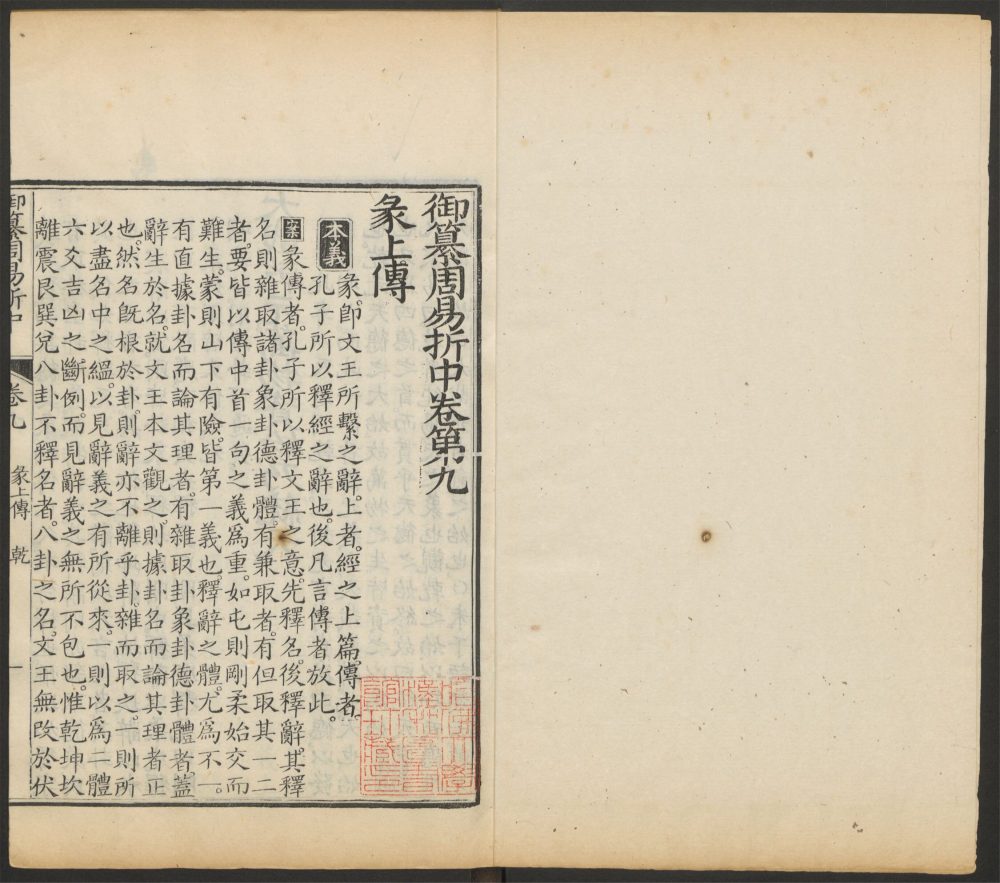 御纂周易折中卷第九
彖上傳
本義 彖即文王所繫之辭。上者。經之上篇。傳者。
孔子所以釋經之辭也。後凡言傳者放此。
案 彖傳者。孔子所以釋文王之意。先釋名。後釋辭。其釋
名則雜取諸卦象卦德卦體。有兼取者。有但取其一二
者。要皆以傳中首一句之義爲重。如屯則剛柔始交而
難生。蒙則山下有險。皆第一義也。釋辭之體。尤爲不一。
有直據卦名而論其理者。有雜取卦象卦德卦體者。蓋
辭生於名。就文王本文觀之。則據卦名而論其理者正
也。然名旣根於卦。則辭亦不離乎卦。雜而取之。則所
以盡名中之緼。以見辭義之有所從來。一則以爲二體
六爻吉凶之斷例。而見辭義之無所不包也。惟乾坤坎
離震艮巽兌八卦不釋名者。八卦之名。文王無改於伏
御纂周易折中 卷九 彖上傳 乾 一